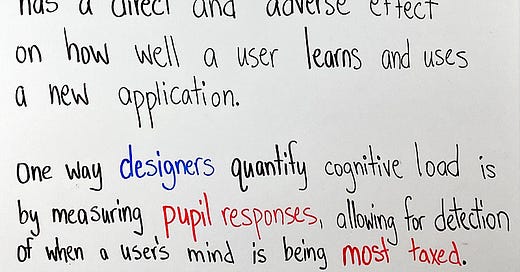 has a direct and adverse effect
on how well a user learns and uses
a new application.
One way designers quantify cognitive load is
by measuring pupil responses, allowing for detection
of when a user's mind is being most taxed.